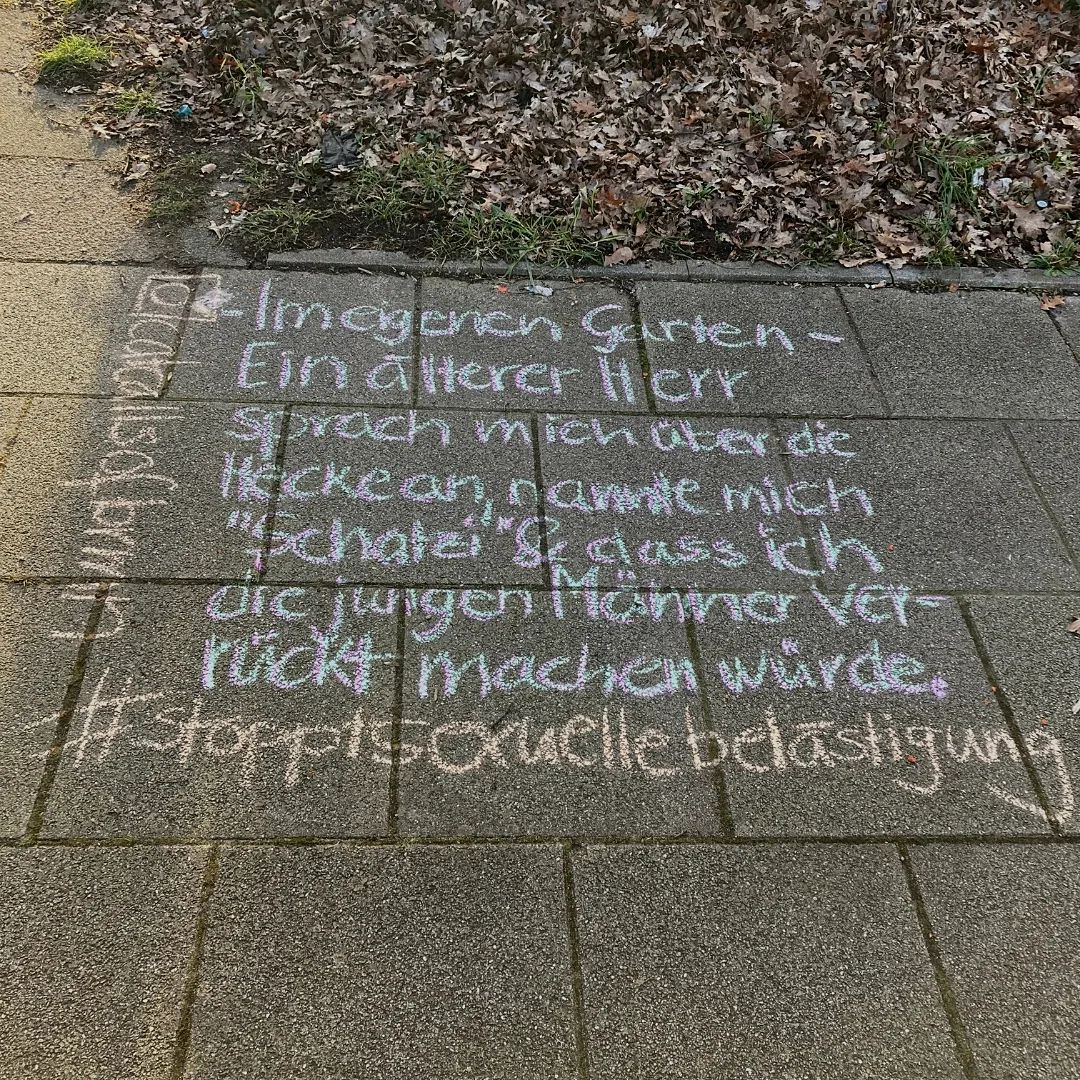 - Im eigenen Garten -
Ein älterer Herr
sprach mich über die
Hecke an, nannte mich
"Schatzi" & dass ich
die jungen Männer ver-
rückt machen würde.
#stopptsexuellebelästigung